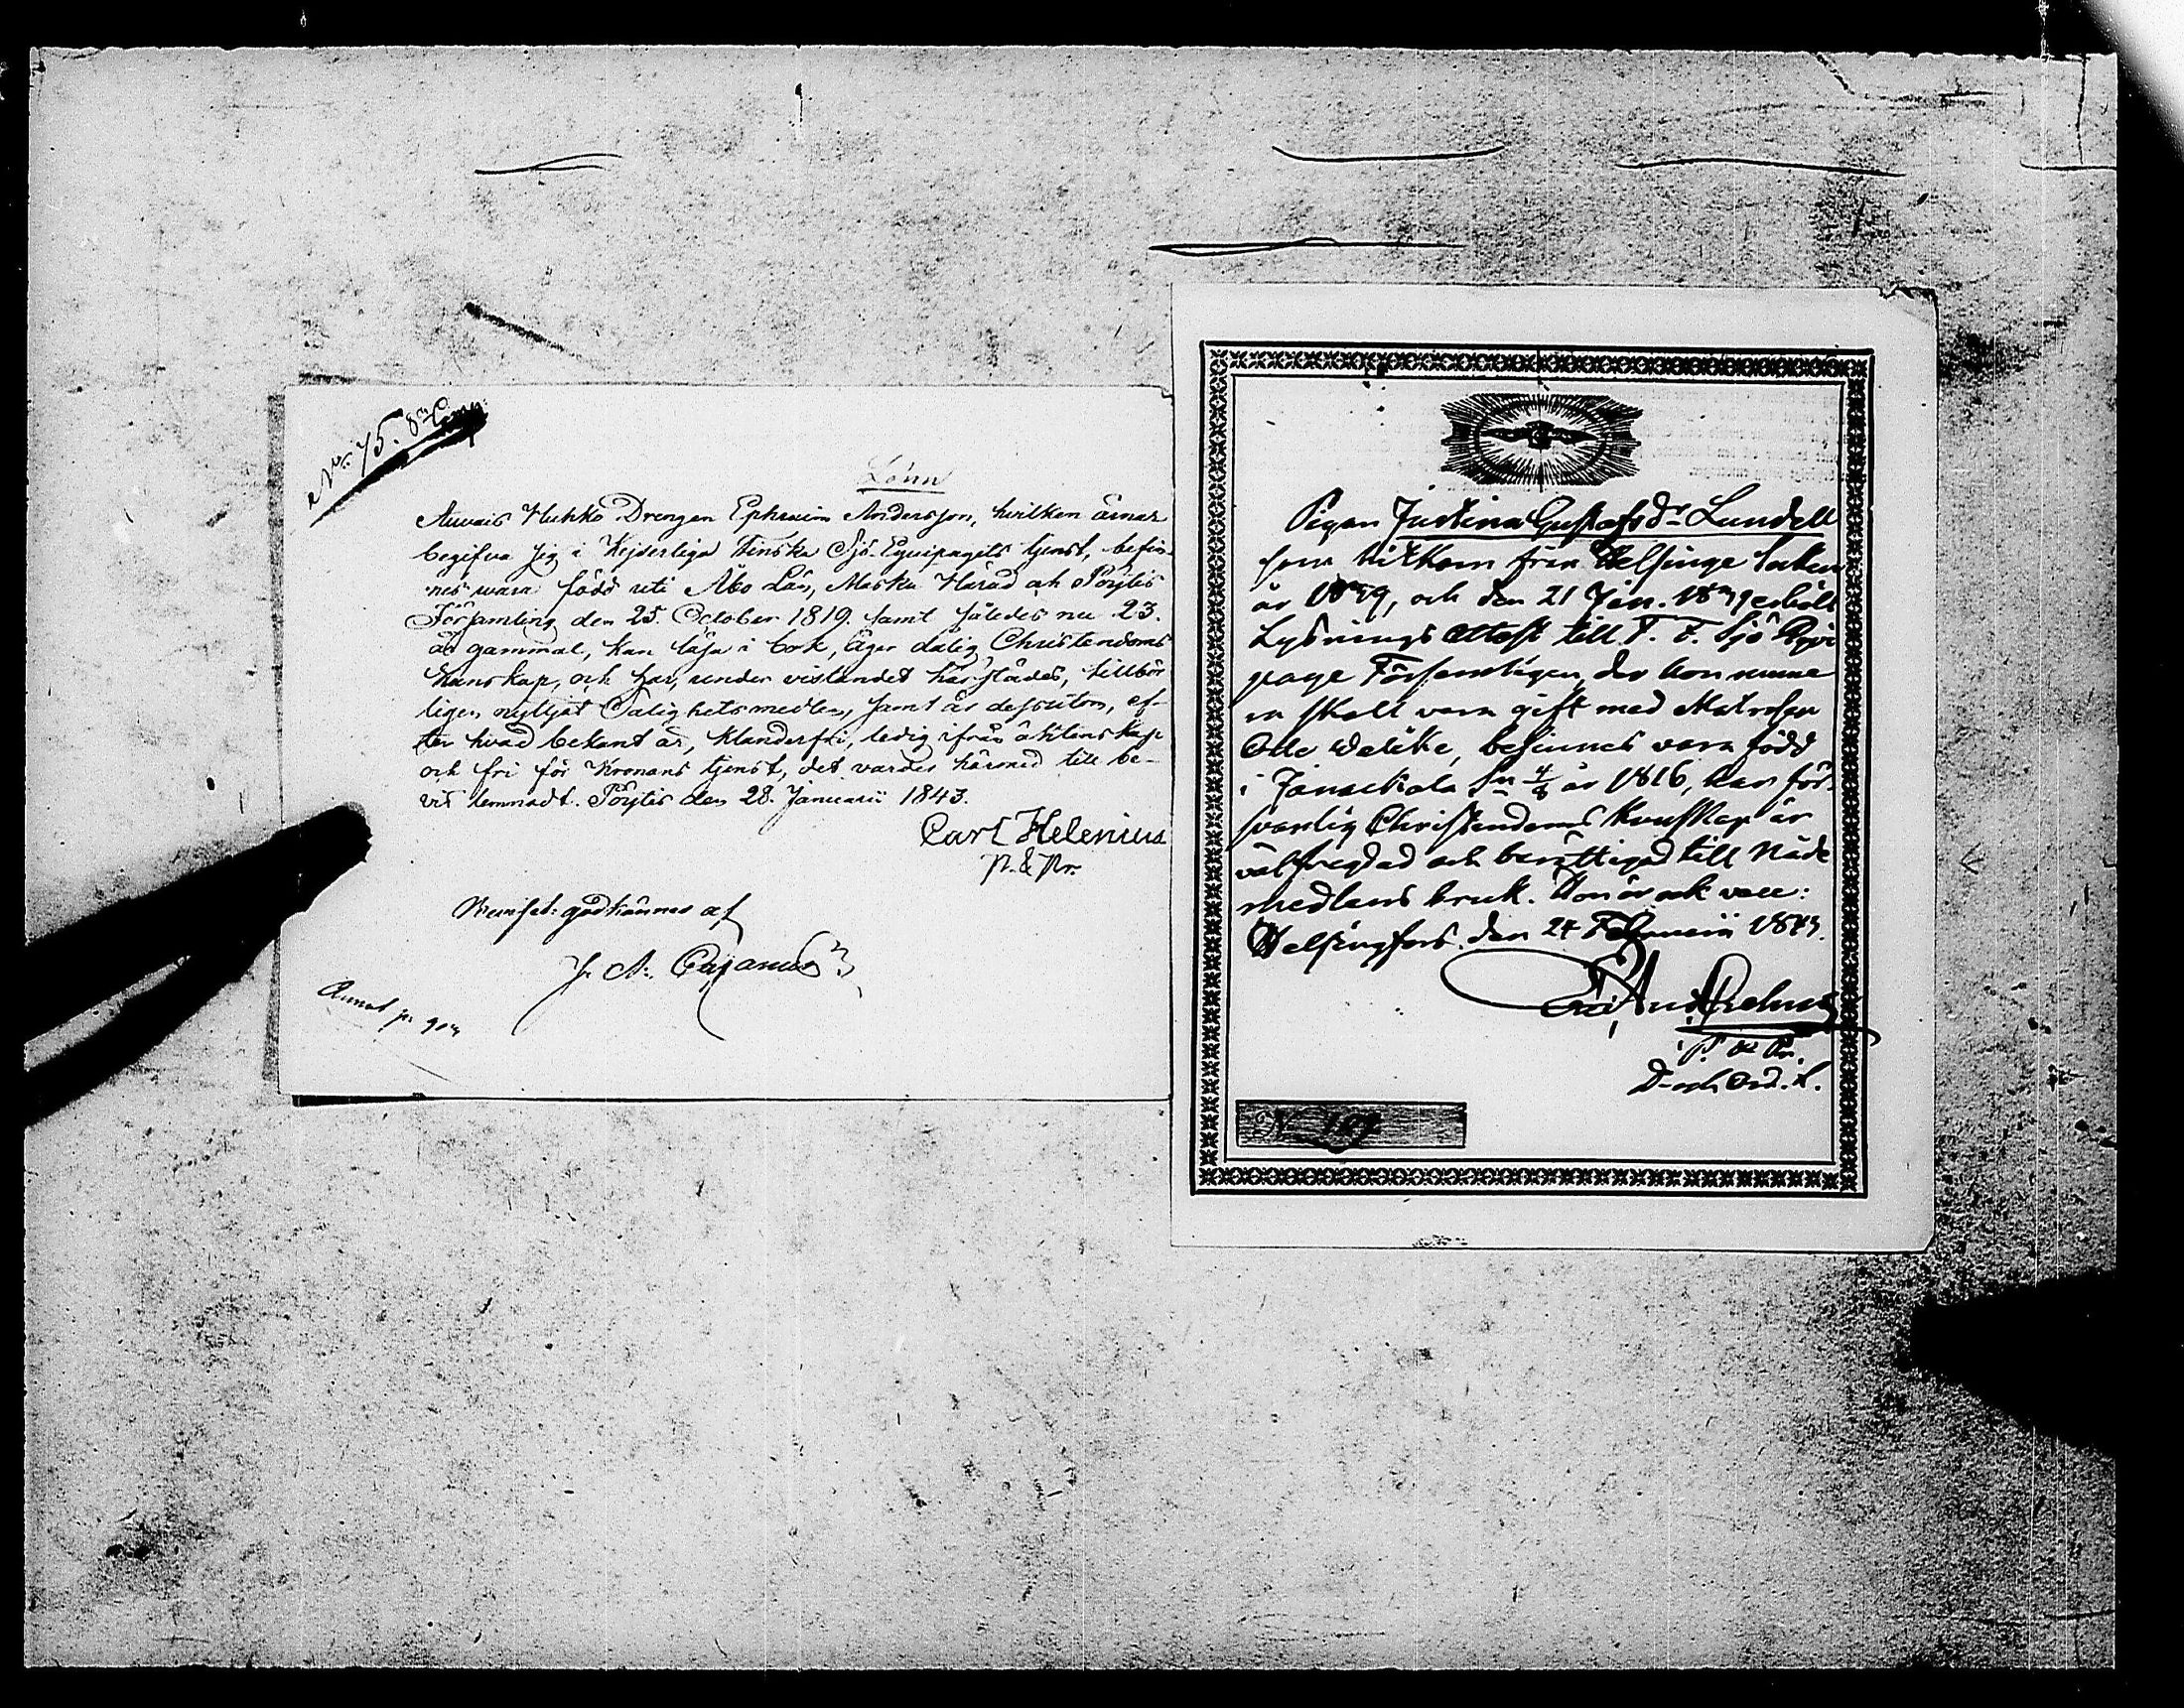 No 75. 8de Comp:
Lönn
Auvais Huhko Drengen Ephraim Andersson, hvilken ärnar
begifva sig i Kejserliga Finska Sjö-Equipagets tjenst, befin-
nes vara född uti Åbo Län, Masku Härad och Pöytis
Församling den 25. October 1819. samt således nu 23.
år gammal, kan läsa i bok, äger dålig Christendoms
kunskap, och har, under vistandet härstädes, tillbör
ligen nyttjat Salighetsmedlen, samt är dessutom, ef-
ter hvad bekant är, klanderfri, ledig ifrån äktenskap
och fri för Kronans tjenst, det varder härmed till be-
vis lemnadt. Pöytis den 28. Januarii 1843.
Carl Helenius
P. & Pr.
godkännes af
J. N. Cajanus
Annot p.
Pigan Justina Gustafsdr Lundell
som tillkom från Helsinge Socken
år 1839, och den 21 Jan. 1839 erhöll
Lysnings Attest till F. F. Sjö Eqvi
page Församligen, der hon numme
ra skall vara gift med Matrosen
Otto Welike, befinnes vara född
i Janackala Sn 4/8 år 1816, har för-
svarlig Christendoms Kunskap är
välfregdad och berättigad till Nåde
medlens bruk. Hon är ock vacc:
Helsingfors den 24 Februarii 1843.
P. & Pr.
N 107